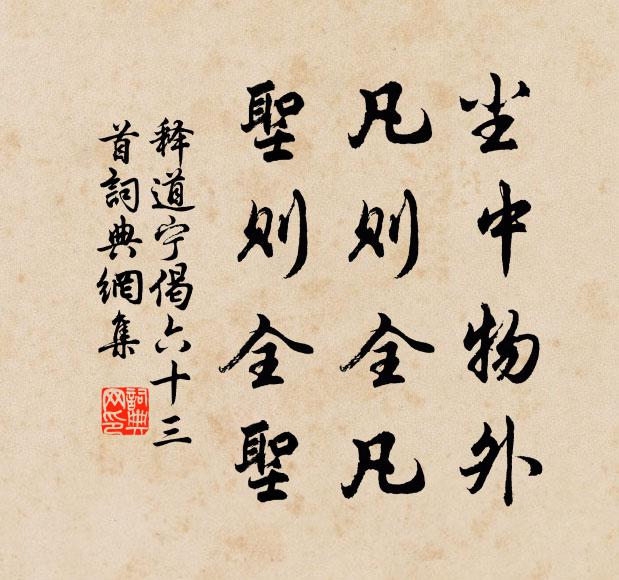 尘中物外
凡则全凡
聖则全聖
释道宁偈六十三
首詞典網集
詞典网印